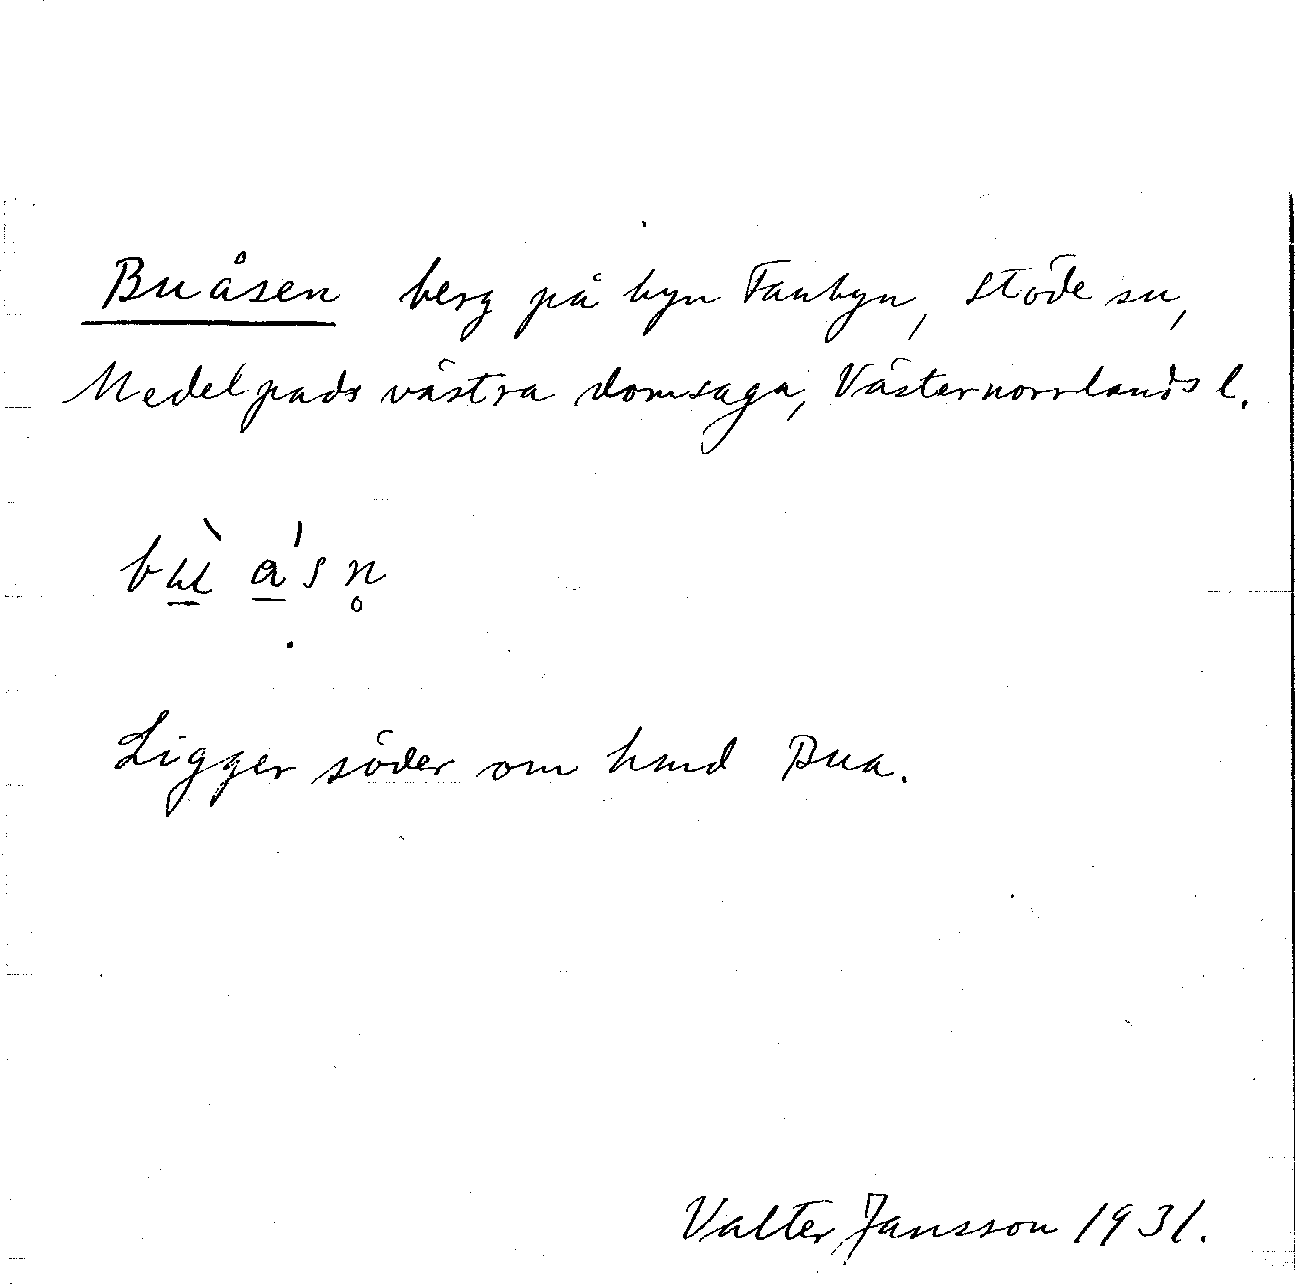 Buåsen berg på byn Fanbyn, Stöde sn,
Medelpads västra domsaga, Västernorrlands l.
Ligger söder om hmd Bua.
Valter Jansson 1931.